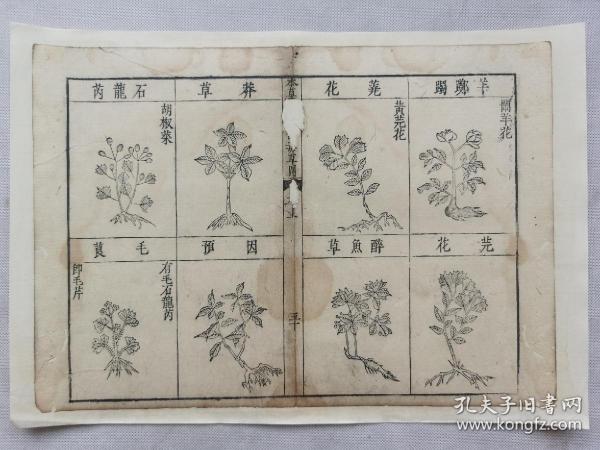 羊躑躅
鬧羊花
蕘花
黃芫花
芫花
醉魚草
本草
草圖
三十
莽草
石龍芮
胡椒菜
因預
毛莨
有毛石龍芮
即毛芹
孔夫子旧书网
www.kongfz.com